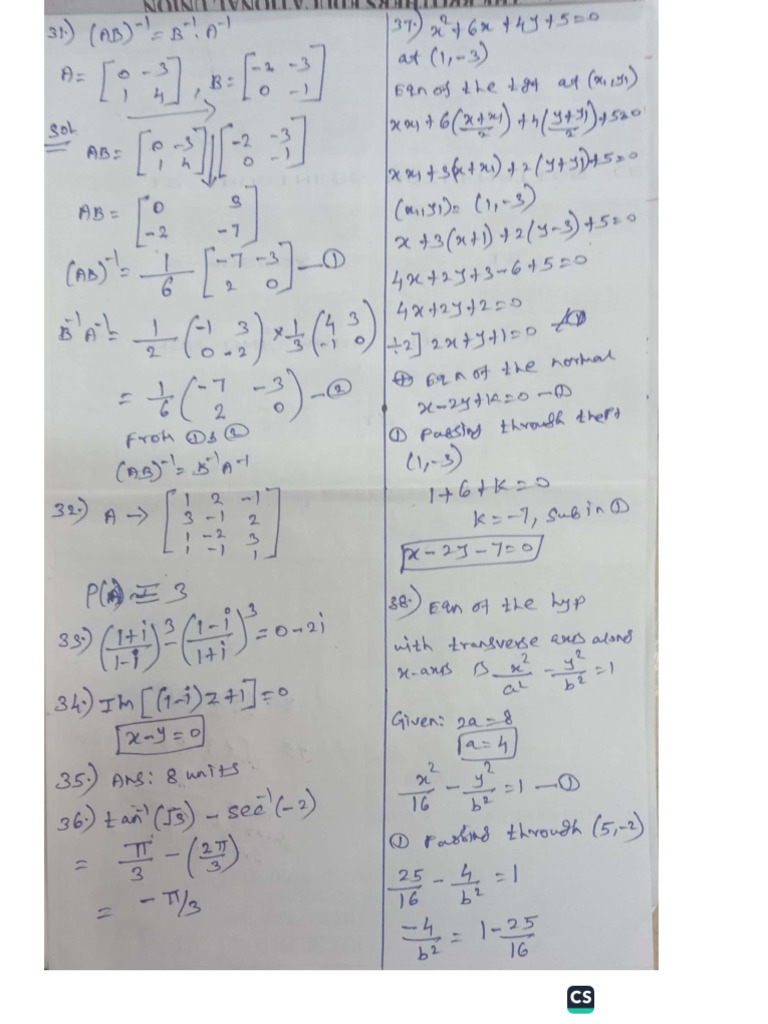 31.) (AB)⁻¹ = B⁻¹. A⁻¹
A = [0 -3; 1 4], B = [-2 -3; 0 -1]
Sol
AB = [0 -3; 1 4] [-2 -3; 0 -1]
AB = [0 3; -2 -7]
(AB)⁻¹ = 1/6 [-7 -3; 2 0] — ①
B⁻¹A⁻¹ = 1/2 (-1 3; 0 -2) × 1/3 (4 3; -1 0)
= 1/6 (-7 -3; 2 0) — ②
From ① & ②
(AB)⁻¹ = B⁻¹A⁻¹
32.) A → [1 2 -1; 3 -1 2; 1 -2 3; 1 -1 1]
P(A) = 3
33.) (1+i/1-i)³ - (1-i/1+i)³ = 0-2i
34.) Im [(1-i)z+1] = 0
x-y=0
35.) Ans: 8 units
36.) tan⁻¹(√3) - sec⁻¹(-2)
= π/3 - (2π/3)
= -π/3
37.) x²+6x+4y+5=0
at (1,-3)
Eqn of the tgt at (x₁,y₁)
xx₁+6(x+x₁/2)+4(y+y₁/2)+5=0
xx₁+3(x+x₁)+2(y+y₁)+5=0
(x₁,y₁)= (1,-3)
x+3(x+1)+2(y-3)+5=0
4x+2y+3-6+5=0
4x+2y+2=0
÷2] 2x+y+1=0
Eqn of the normal
x-2y+k=0 — ①
① Passing through the pt
(1,-3)
1+6+k=0
k=-7, sub in ①
x-2y-7=0
38.) Eqn of the hyp
with transverse axis along
x-axis is x²/a² - y²/b² = 1
Given: 2a=8
a=4
x²/16 - y²/b² = 1 — ①
① Passing through (5,-2)
25/16 - 4/b² = 1
-4/b² = 1-25/16
CS